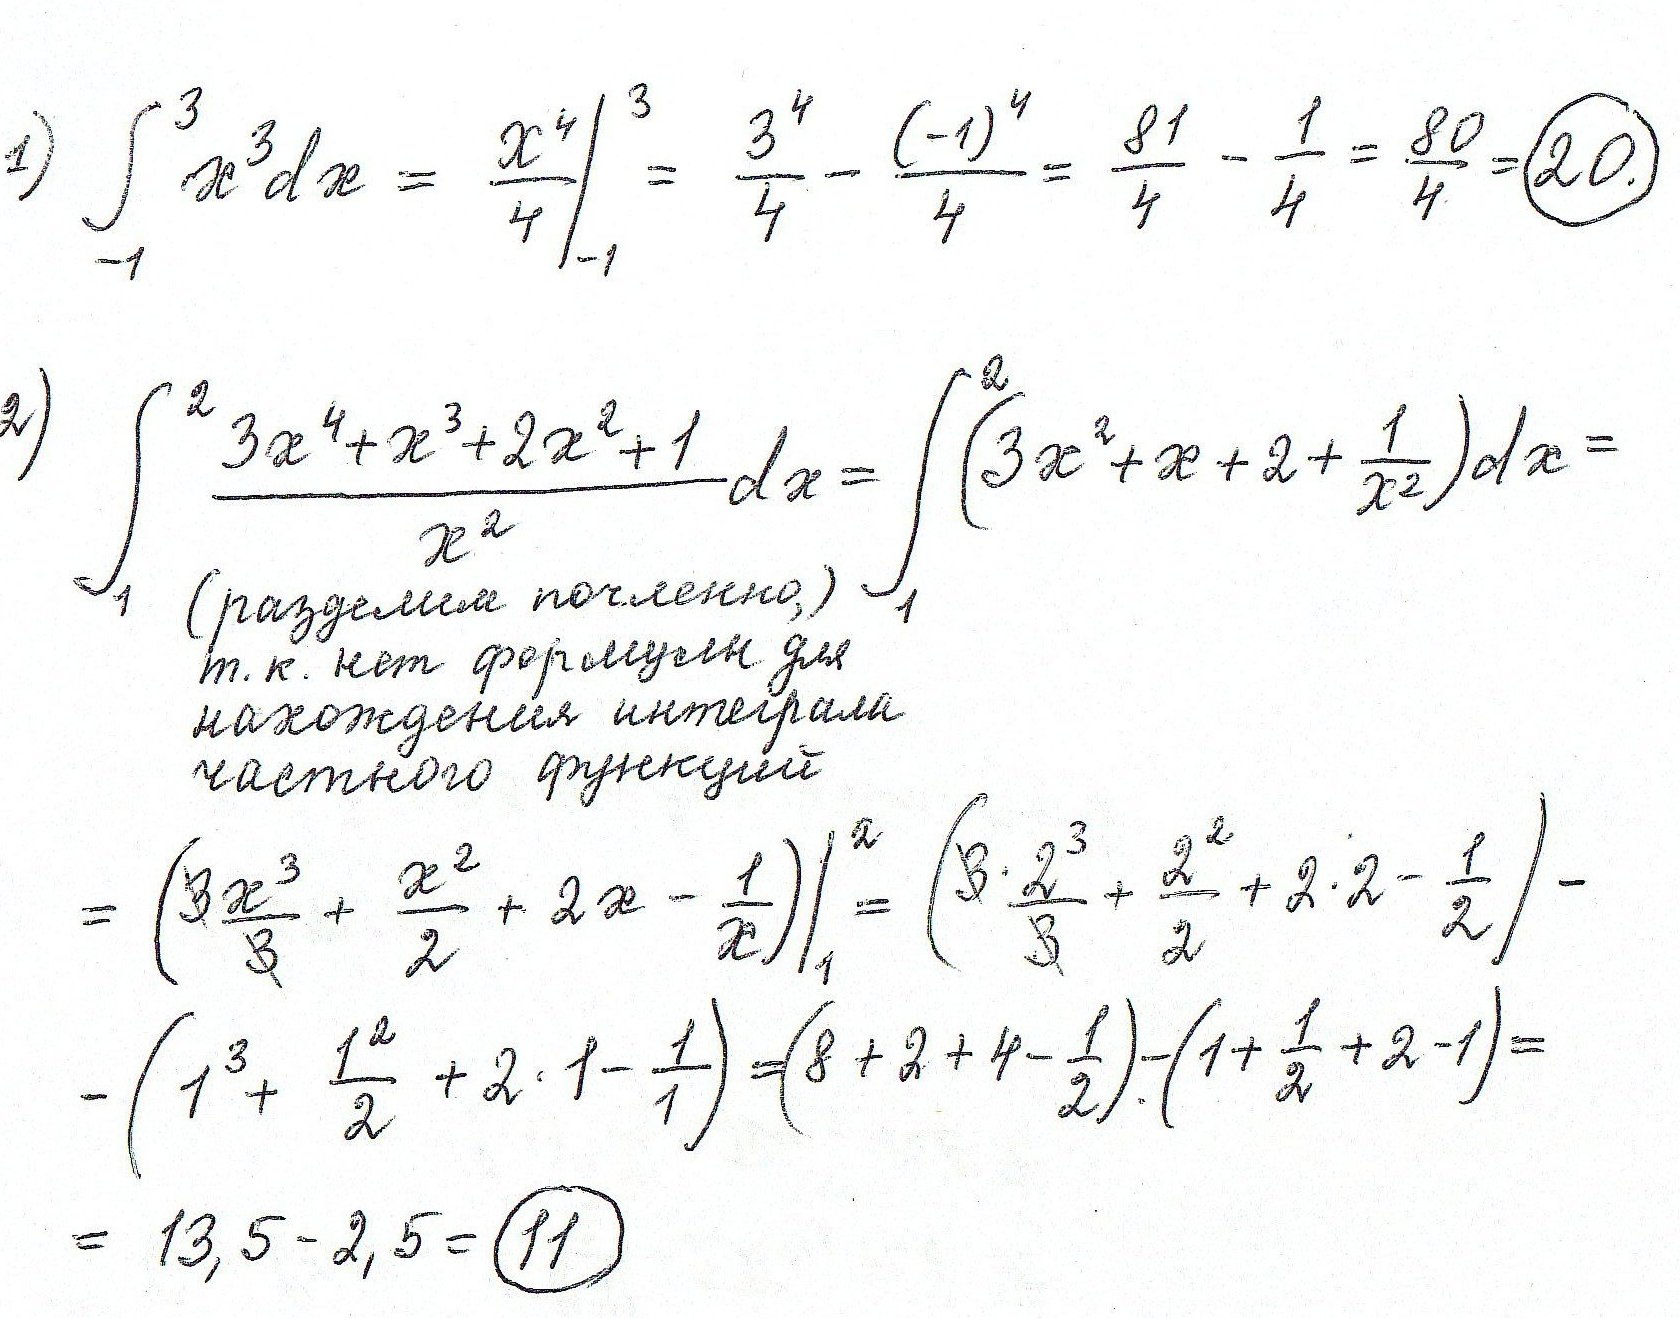 1) ∫₋₁³ x³dx = x⁴/4 |₋₁³ = 3⁴/4 - (-1)⁴/4 = 81/4 - 1/4 = 80/4 = 20.
2) ∫₁² (3x⁴+x³+2x²+1)/x² dx = ∫₁² (3x²+x+2+1/x²)dx =
(разделим почленно,)
т.к. нет формулы для
нахождения интеграла
частного функций
= (3x³/3 + x²/2 + 2x - 1/x)|₁² = (3·2³/3 + 2²/2 + 2·2 - 1/2) -
- (1³ + 1²/2 + 2·1 - 1/1) = (8+2+4-1/2) - (1+1/2+2-1) =
= 13,5 - 2,5 = 11